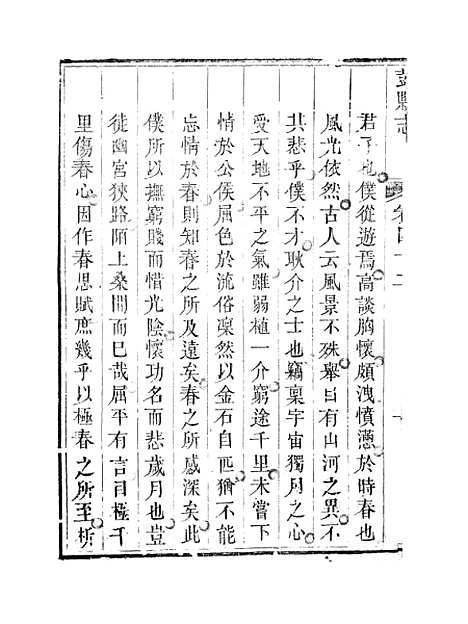 彭縣志 卷四十二
君子也僕從遊焉高談胸懷頗洩憤懣於時春也
風光依然古人云風景不殊舉目有山河之異不
其悲乎僕不才耿介之士也竊稟宇宙獨用之心
受天地不平之氣雖弱植一介窮途千里未嘗下
情於公侯屈色於流俗凜然以金石自匹猶不能
忘情於春則知春之所及遠矣春之所感深矣此
僕所以撫窮賤而惜光陰懷功名而悲歲月也豈
徒幽宮狹路陌上桑間而已哉屈平有言目極千
里傷春心因作春思賦庶幾乎以極春之所至析